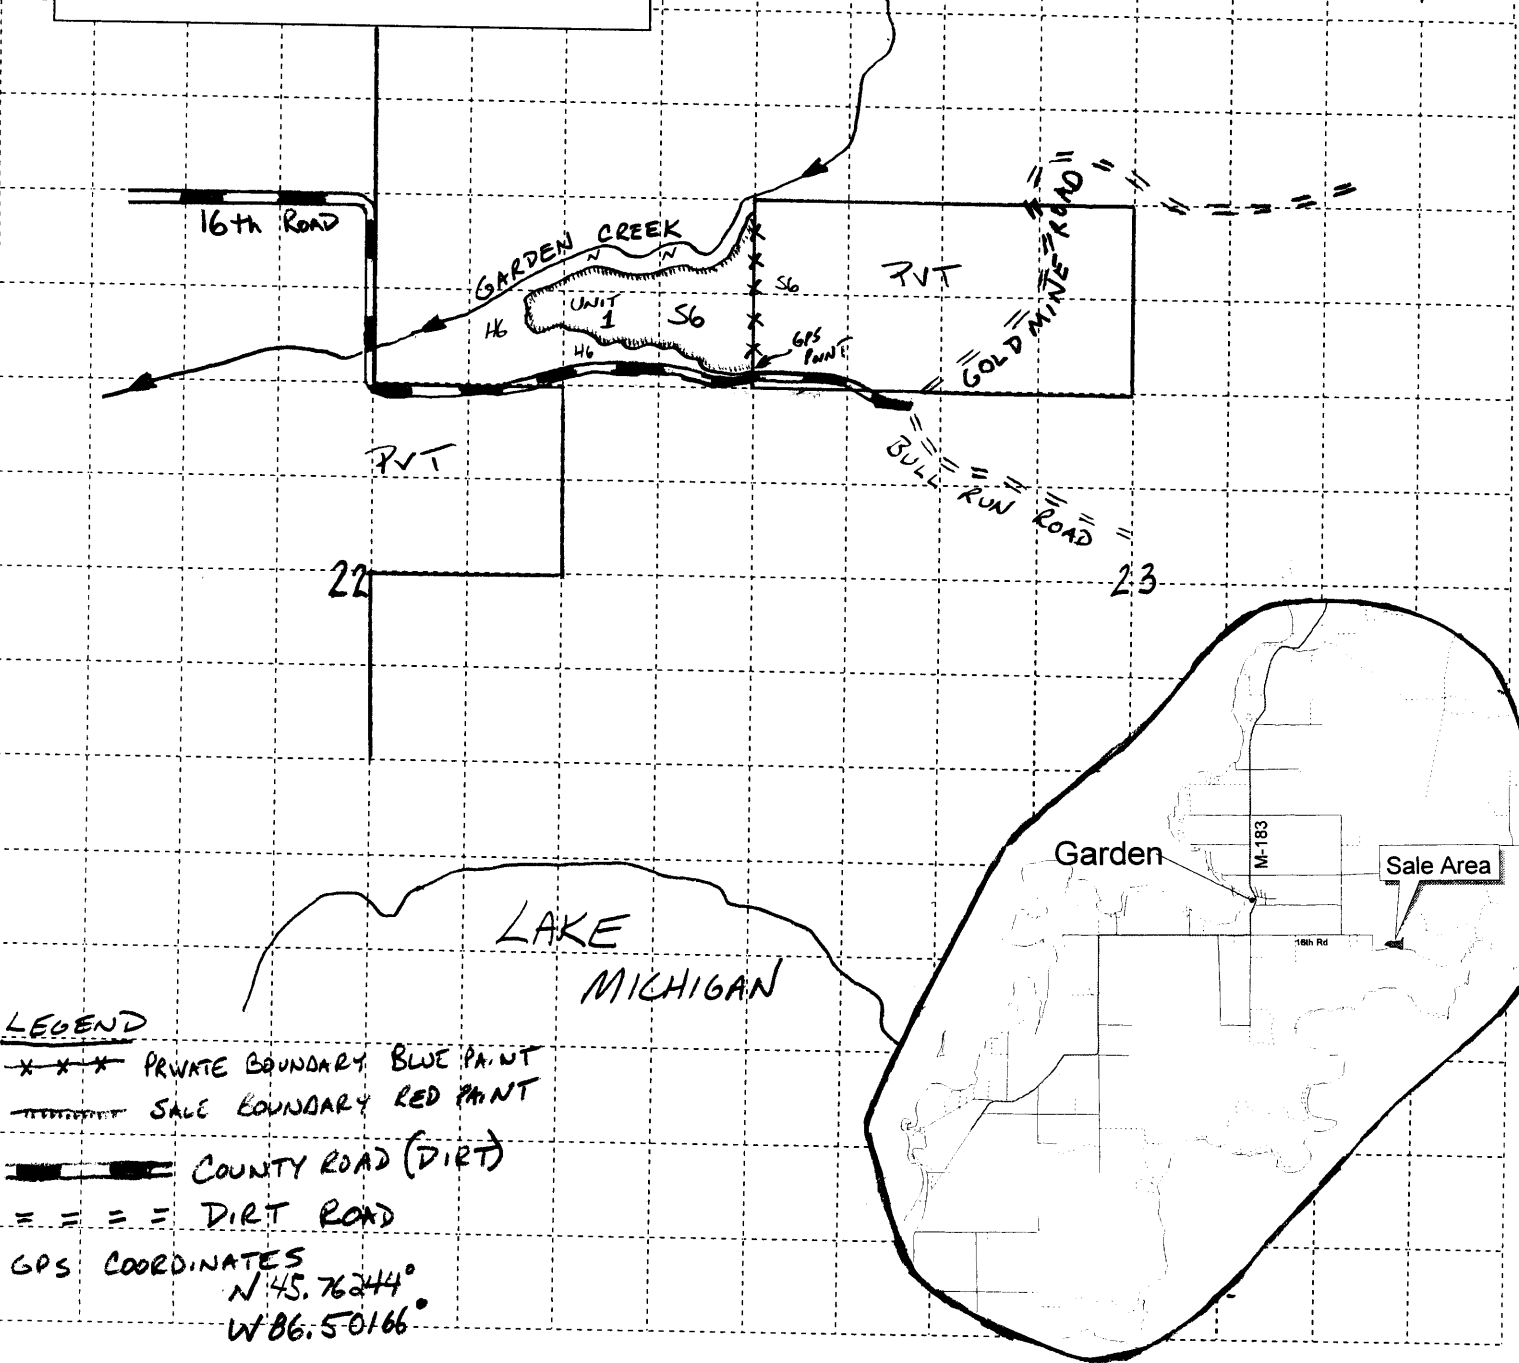 16th ROAD
GARDEN CREEK
N N
UNIT
1
S6
S6
H6
H6
PVT
GPS
POINT
GOLD MINE ROAD
PVT
BULL RUN ROAD
22
23
LAKE
MICHIGAN
Garden
M-183
Sale Area
16th Rd
LEGEND
x x x PRIVATE BOUNDARY BLUE PAINT
SALE BOUNDARY RED PAINT
COUNTY ROAD (DIRT)
= = = = DIRT ROAD
GPS COORDINATES
N 45.76244°
W 86.50166°